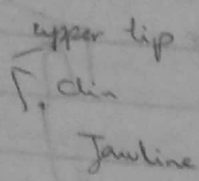 upper lip
chin
Jawline